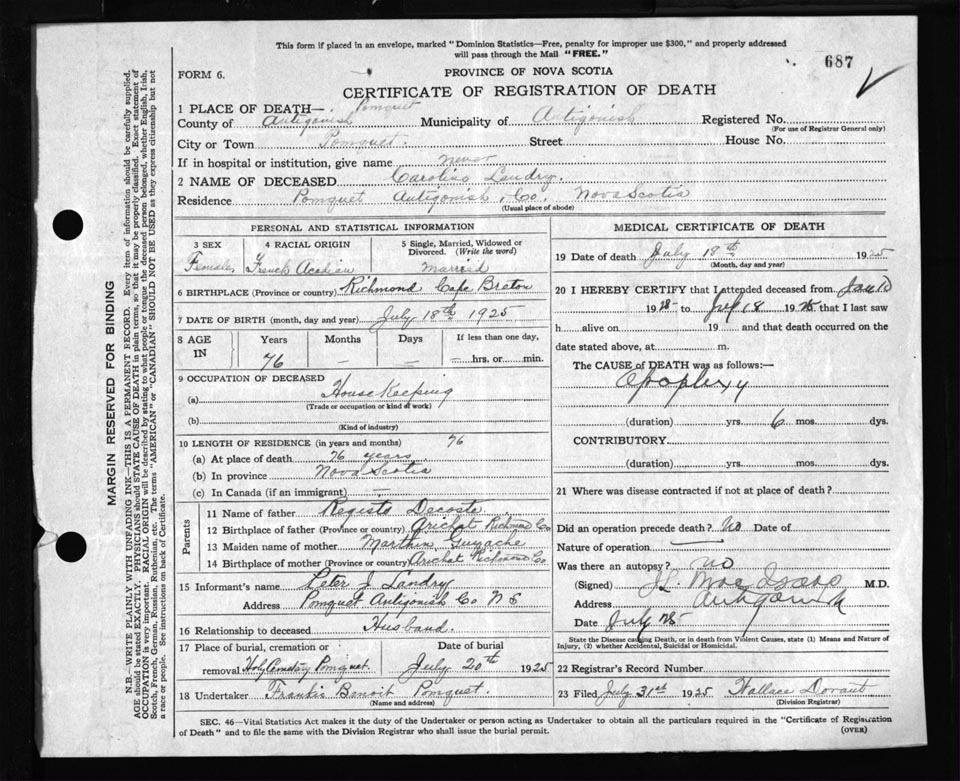 This form if placed in an envelope, marked "Dominion Statistics—Free, penalty for improper use $300," and properly addressed
will pass through the Mail "FREE."
687
FORM 6.
PROVINCE OF NOVA SCOTIA
CERTIFICATE OF REGISTRATION OF DEATH
1 PLACE OF DEATH— Pomquet
County of Antigonish Municipality of Antigonish Registered No.
(For use of Registrar General only)
City or Town Pomquet. Street House No.
If in hospital or institution, give name never
2 NAME OF DECEASED Caroline Landry.
Residence Pomquet Antigonish, Co. Nova Scotia
(Usual place of abode)
PERSONAL AND STATISTICAL INFORMATION
3 SEX 4 RACIAL ORIGIN 5 Single, Married, Widowed or
Divorced. (Write the word)
Female French Acadian Married
6 BIRTHPLACE (Province or country) Richmond Cape Breton
7 DATE OF BIRTH (month, day and year) July 18th 1925
8 AGE
IN
Years Months Days If less than one day,
76 — — — hrs. or min.
9 OCCUPATION OF DECEASED
(a) House Keeping
(Trade or occupation or kind of work)
(b)
(Kind of industry)
10 LENGTH OF RESIDENCE (in years and months) 76
(a) At place of death 76 years
(b) In province Nova Scotia
(c) In Canada (if an immigrant) —
Parents
11 Name of father Regista Decoste
12 Birthplace of father (Province or country) Arichat Richmond Co
13 Maiden name of mother
14 Birthplace of mother (Province or Country) Arichat Richmond Co
15 Informant's name Peter J. Landry
Address Pomquet Antigonish Co N S
16 Relationship to deceased Husband.
17 Place of burial, cremation or Date of burial
removal Holy Cemetary Pomquet. July 20th 1925
18 Undertaker Frank Benoit Pomquet.
(Name and address)
MEDICAL CERTIFICATE OF DEATH
19 Date of death July 18th 1925
(Month, day and year)
20 I HEREBY CERTIFY that I attended deceased from
19 to 18 19 that I last saw
h alive on 19 and that death occurred on
date stated above, at m.
The CAUSE of DEATH was as follows:—
Apoplexy
(duration) yrs. 6 mos. dys.
CONTRIBUTORY
(duration) yrs. mos. dys.
21 Where was disease contracted if not at place of death?
Did an operation precede death? No Date of
Nature of operation
Was there an autopsy? No
(Signed) M.D.
Address Antigonish
Date July 25
State the Disease causing Death, or in death from Violent Causes, state (1) Means and Nature
of Injury, (2) whether Accidental, Suicidal or Homicidal.
22 Registrar's Record Number
23 Filed July 31st 1925 Wallace
(Division Registrar)
SEC. 46—Vital Statistics Act makes it the duty of the Undertaker or person acting as Undertaker to obtain all the particulars required in the "Certificate of Registration
of Death" and to file the same with the Division Registrar who shall issue the burial permit.
(OVER)
MARGIN RESERVED FOR BINDING
N.B.—WRITE PLAINLY WITH UNFADING INK—THIS IS A PERMANENT RECORD. Every item of information should be carefully supplied.
AGE should be stated EXACTLY. PHYSICIANS should STATE CAUSE OF DEATH in plain terms, so that it may be properly classified. Exact statement of
OCCUPATION is very important. RACIAL ORIGIN will be described by stating to what people or tongue the deceased person belonged, whether English, Irish,
Scotch, French, German, Russian, Ruthenian, etc. The terms "AMERICAN" or "CANADIAN" SHOULD NOT BE USED as they express citizenship but not
a race or people. See instructions on back of Certificate.